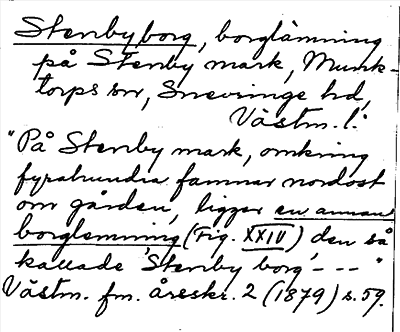 Stenby borg, borglämning
på Stenby mark, Munk-
torps sn, Snevringe hd,
Västm. l.
"På Stenby mark, omkring
fyrahundra famnar nordost
om gården, ligger en annan
borglemning (Fig. XXIV) den så
kallade 'Stenby borg' - - - "
Västm. fm. åresskr. 2 (1879) s. 59.